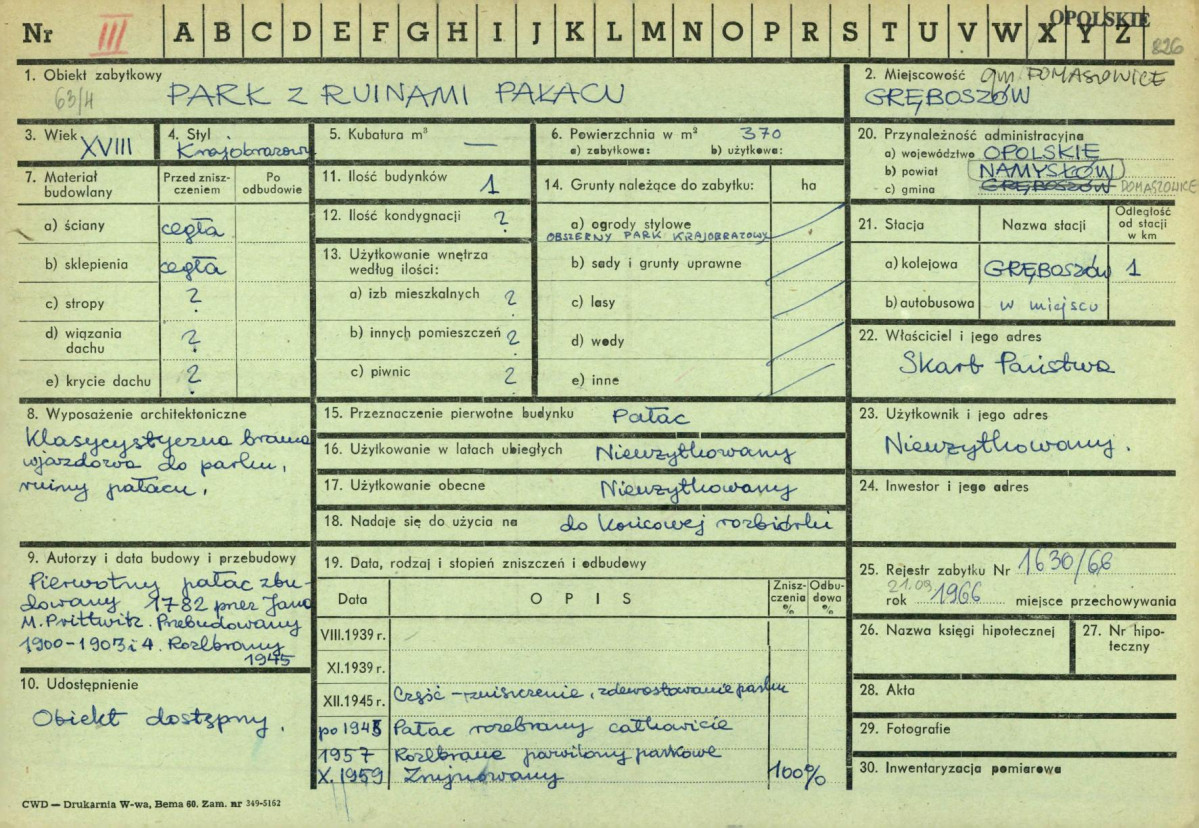 Nr III A B C D E F G H I J K L M N O P R S T U V W X Y Z
OPOLSKIE
826
1. Obiekt zabytkowy
63/4
PARK Z RUINAMI PAŁACU
2. Miejscowość gm. DOMASZOWICE
GRĘBOSZÓW
3. Wiek
XVIII
4. Styl
Krajobrazowy
5. Kubatura m³
—
6. Powierzchnia w m² 370
a) zabytkowa: b) użytkowa:
7. Materiał budowlany
Przed zniszczeniem
Po odbudowie
a) ściany cegła
b) sklepienia cegła
c) stropy ?
d) wiązania dachu ?
e) krycie dachu ?
8. Wyposażenie architektoniczne
Klasycystyczna brama
wjazdowa do parku,
ruiny pałacu.
9. Autorzy i data budowy i przebudowy
Pierwotny pałac zbu-
dowany 1782 przez Jana
M. Prittwitz. Przebudowany
1900-1903i4. Rozebrany
1945
10. Udostępnienie
Obiekt dostępny.
CWD — Drukarnia W-wa, Bema 60. Zam. nr 349-5162
11. Ilość budynków 1
12. Ilość kondygnacji ?
13. Użytkowanie wnętrza
według ilości:
a) izb mieszkalnych ?
b) innych pomieszczeń ?
c) piwnic ?
14. Grunty należące do zabytku: ha
a) ogrody stylowe
OBSZERNY PARK KRAJOBRAZOWY
b) sady i grunty uprawne
c) lasy
d) wody
e) inne
15. Przeznaczenie pierwotne budynku Pałac
16. Użytkowanie w latach ubiegłych Nieużytkowany
17. Użytkowanie obecne Nieużytkowany
18. Nadaje się do użycia na do końcowej rozbiórki
19. Data, rodzaj i stopień zniszczeń i odbudowy
Data OPIS Zniszczenia % Odbudowa %
VIII.1939 r.
XI.1939 r.
XII.1945 r. Część – zniszczenie, zdewastowanie parku
po 1945 Pałac rozebrany całkowicie
1957 Rozebrane pawilony parkowe
X.1959 Zrujnowany 100%
20. Przynależność administracyjna
a) województwo OPOLSKIE
b) powiat NAMYSŁÓW
c) gmina GRĘBOSZÓW DOMASZOWICE
21. Stacja Nazwa stacji Odległość od stacji w km
a) kolejowa GRĘBOSZÓW 1
b) autobusowa w miejscu
22. Właściciel i jego adres
Skarb Państwa
23. Użytkownik i jego adres
Nieużytkowany.
24. Inwestor i jego adres
25. Rejestr zabytku Nr 1630/66
21.09
rok 1966 miejsce przechowywania
26. Nazwa księgi hipotecznej
27. Nr hipoteczny
28. Akta
29. Fotografie
30. Inwentaryzacja pomiarowa